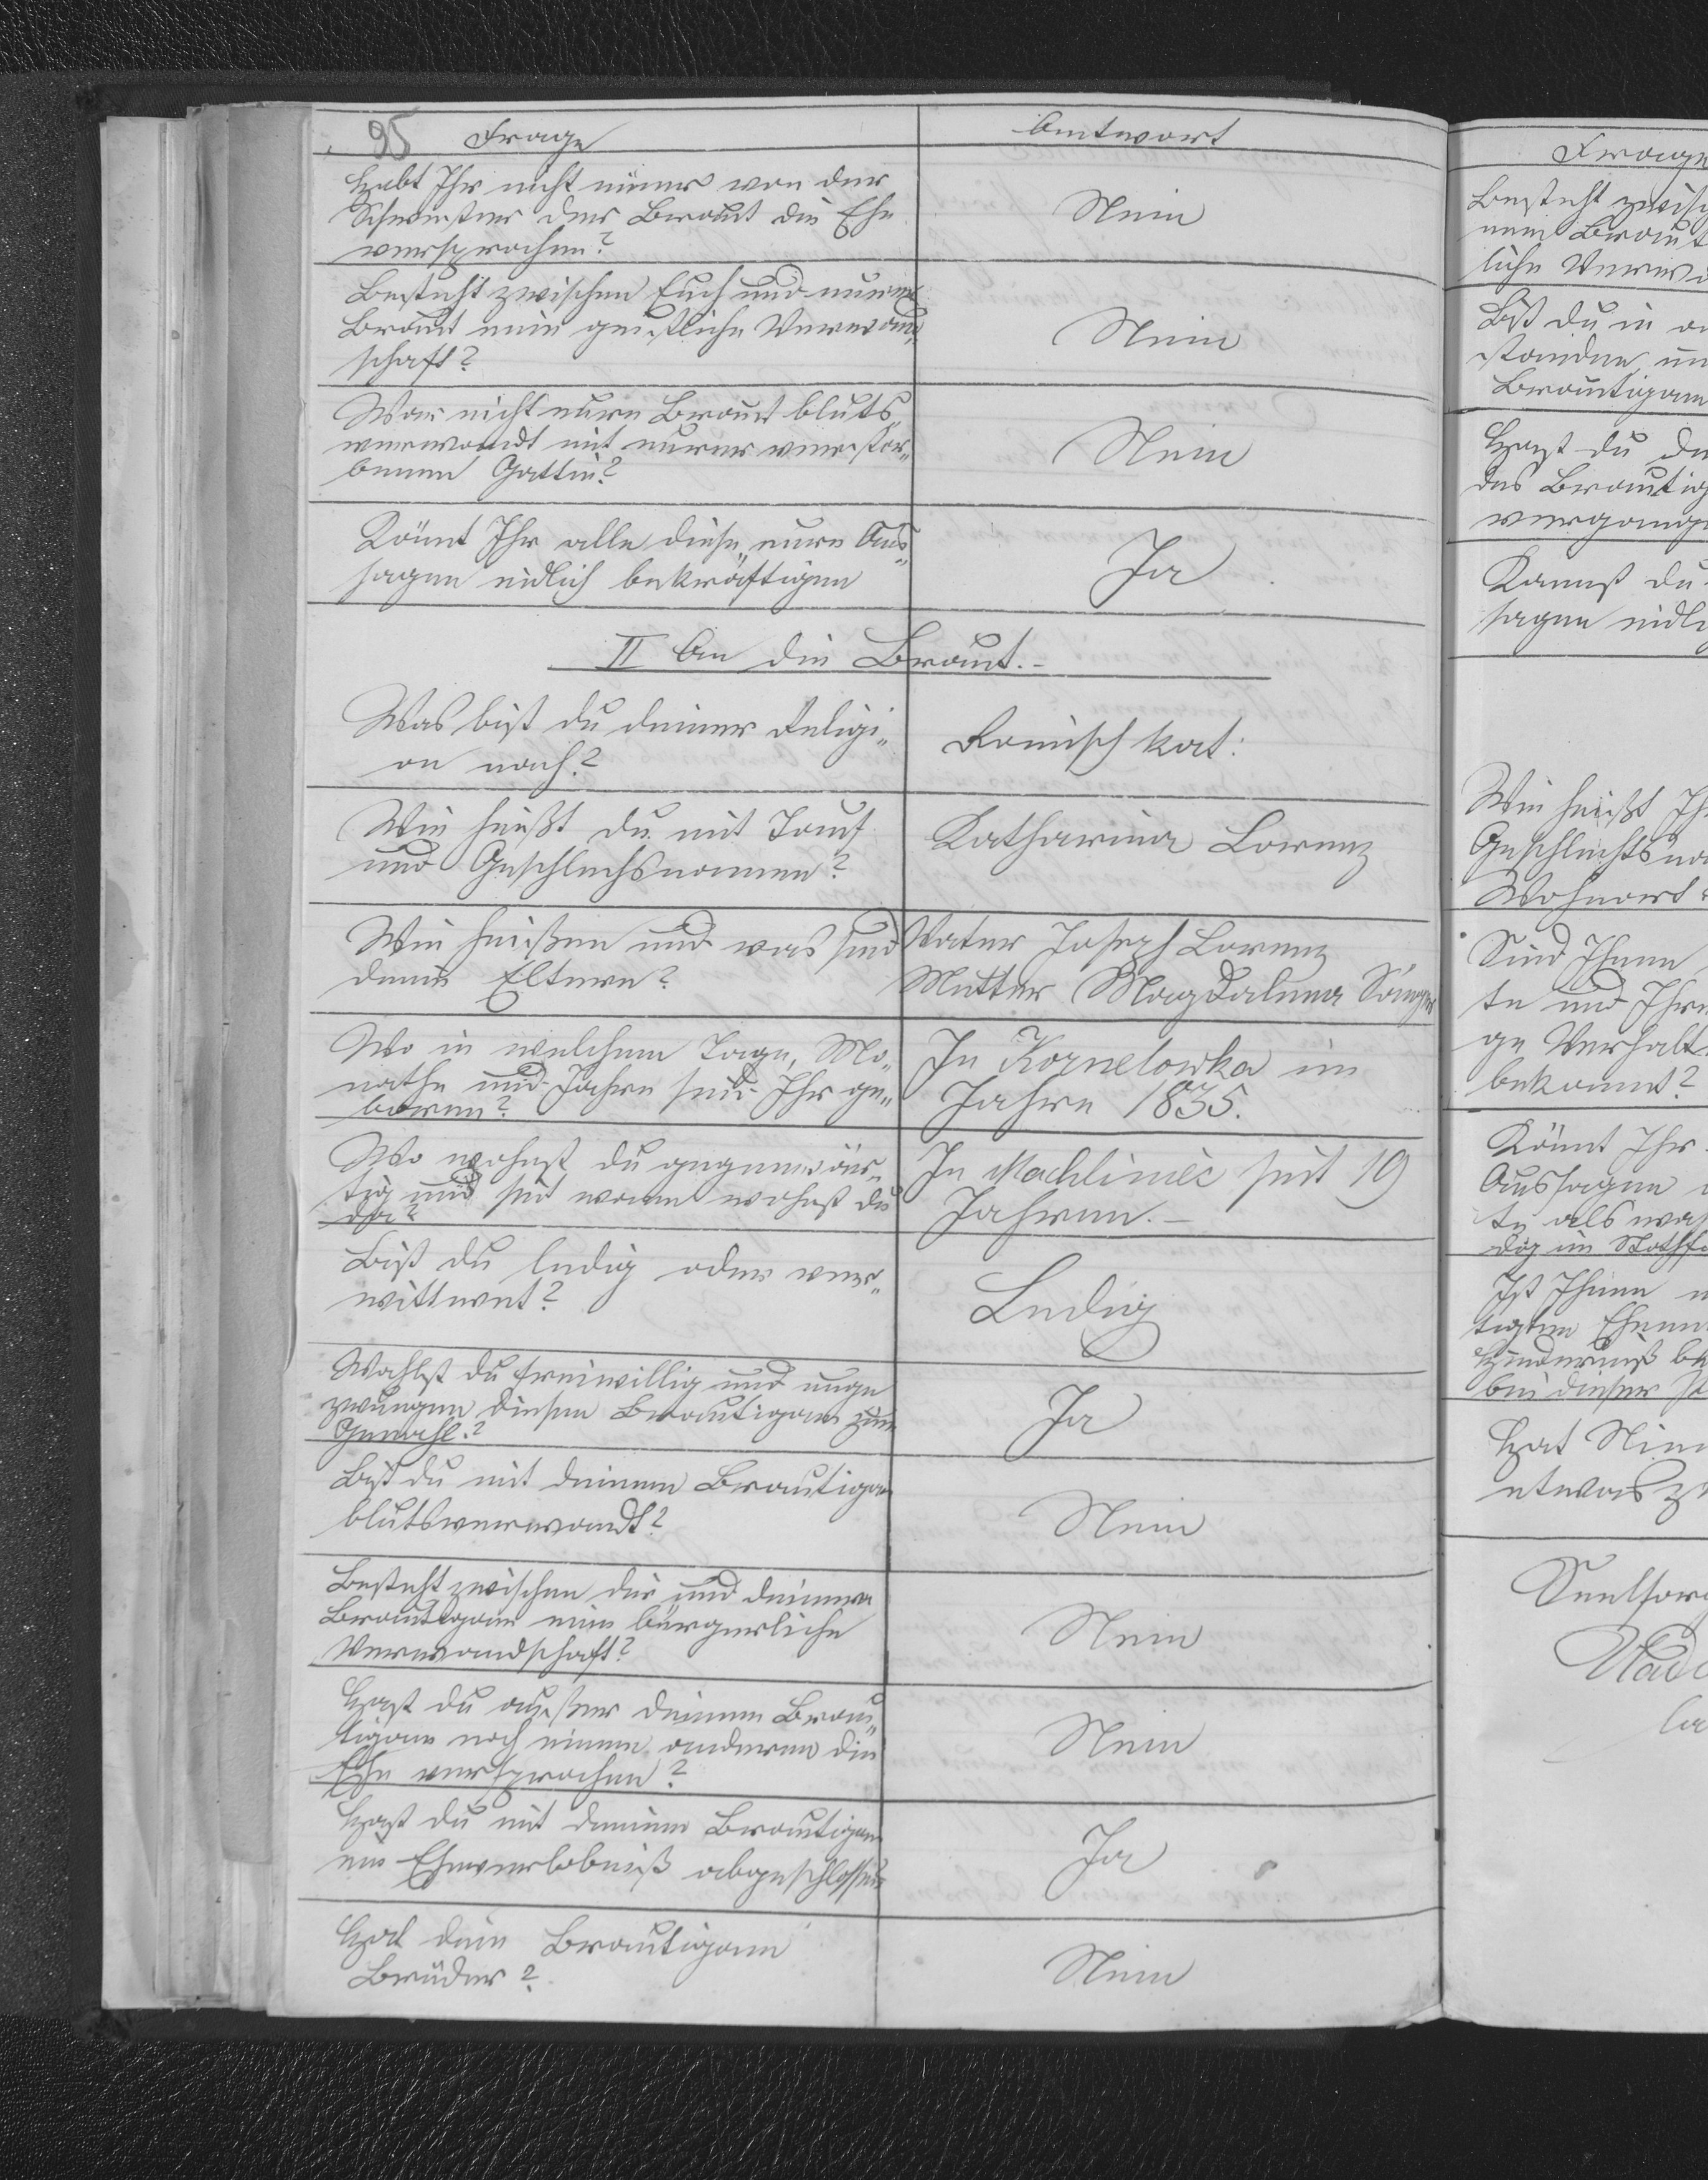 95 Frage
Antwort
Habt Ihr nicht einer von der
Schwester der Braut die Ehe
versprochen?
Nein
Besteht zwischen Euch und eurer
Braut eine geistliche Verwand„
schaft?
Nein
War nicht eure Braut bluts„
verwandt mit eurer verstor„
benen Gattin?
Nein
Könnt Ihr alle diese eure Aus„
sagen eidlich bekräftigen
Ja
II An die Braut.-
Was bist du deiner Religi„
on nach?
Römisch kat:
Wie heißt du mit Tauf
und Geschlechsnamen?
Katharina Lorenz
Wie heißen und was sind
deine Eltern?
Vater Joseph Lorenz
Mutter Magdalena Sänger
Wo in welchem Tage, Mo„
nathe und Jahre seid Ihr ge„
boren?
In Kornelowka im
Jahre 1835.
Wo wohnst du gegenwär„
tig und seit wann wohnst du
da?
In Machliniec seit 19
Jahren.-
Bist du ledig oder ver„
wittwet?
Ledig
Wahlst du freiwillig und unge
zwungen diesen Brautigam zum
Gemahl?
Ja
Bist du mit deinem Brautigam
blutsverwandt?
Nein
Besteht zwischen dir und deinem
Brautigam eine bürgerliche
Verwandschaft?
Nein
Hast du außer deinem Brau„
tigam noch einem anderen die
Ehe versprochen?
Nein
Hast du mit deinem Brautigam
ein Eheverlobniß abgeschlossen
Ja
Hat dein Brautigam
Brüder?
Nein
Frage
Besteht zwisch
nem Braut
liche Verwa
Bist du in
standen
Brautigam
Hast du
des Brautig
vergang
Kannst du
sagen eidli
Wie heißt Ih
Geschlechtsna
Wohnort
Sind Ihnen
te und Ihre
ge Verhalt
bekannt?
Könnt Ihr
Aussagen
te als wa
dig im Nothfa
Ist Ihnen
tigten Ehe
Hinderniß be
bei dieser
Hat Nie
etwas z
Seelsorg
Wlad